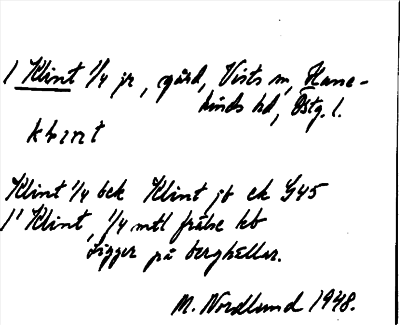 1 Klint 1/4 jr, gård, Vists sn, Hane-
kinds hd, Östg. l.
klint
Klint 1/4 bek Klint jb ek G45
1' Klint, 1/4 mtl frälse kb
Ligger på berghällar.
M. Nordlund 1948.